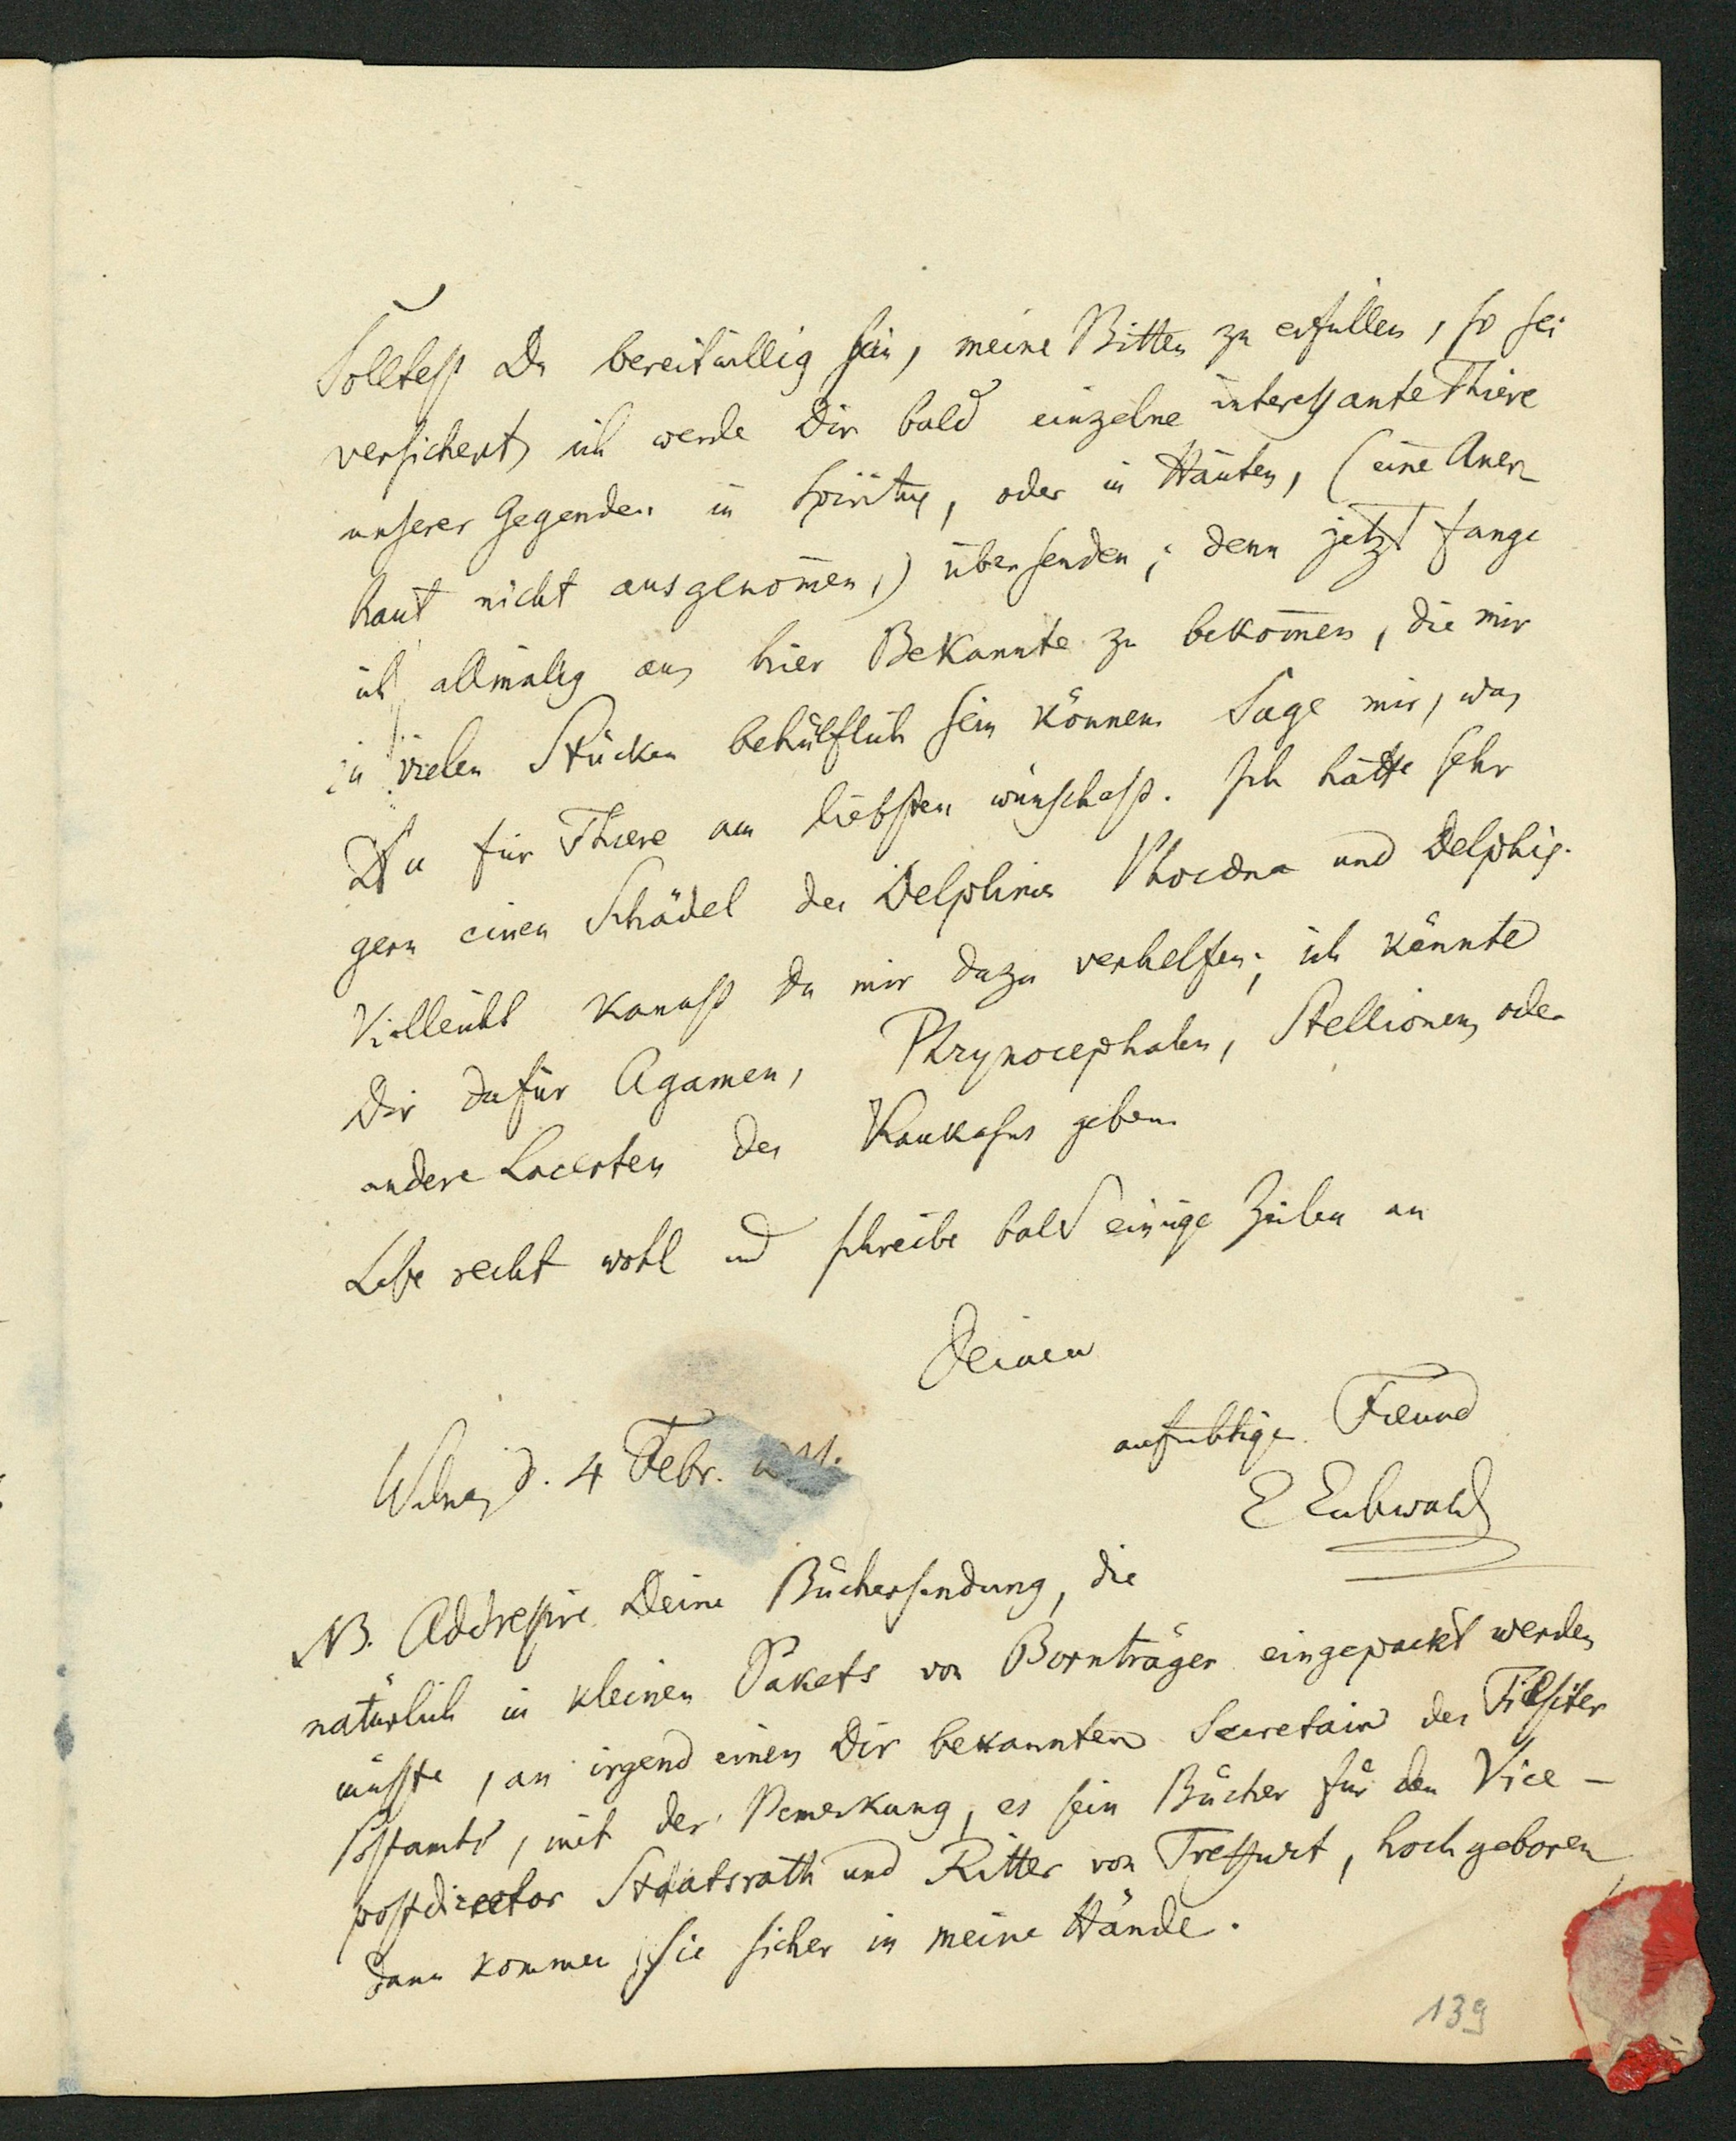 Solltest Du bereitwillig sein, meine Bitten zu erfüllen, so sei
versichert, ich werde Dir bald einzelne interessante Thiere
unserer Gegenden in Spiritus, oder in Häuten, (eine Auer-
haut nicht ausgenom̅en,) übersenden; denn jetzt fange
ich allmälig an hier Bekannte zu bekom̅en, die mir
in vielen Stücken behülflich sein können. Sage mir, was
Du für Thiere am liebsten wünschest. Ich hätte sehr
gern einen Schädel des Delphinus Phocäna und Delphis.
Vielleicht kannst Du mir dazu verhelfen; ich könnte
Dir dafür Agamen, Phrynocephalen, Stellionen, oder
andere Lacerten des Kaukasus geben.
Lebe recht wohl und schreibe bald einige Zeilen an
Deinen
aufrichtigen Freund
Wilna, d. 4 Febr.
E Eichwald
NB. Addressire Deine Büchersendung, die
natürlich in kleinen Pakets von Bornträger eingepackt werden
müsste, an irgend einen Dir bekannten Secretair des Tilsiter
Postamts, mit der Bemerkung, es sein Bücher für den Vice-
postdirector Staatsrath und Ritter von Treffurt, hochgeboren
dann kommen sie sicher in meine Hände.
139